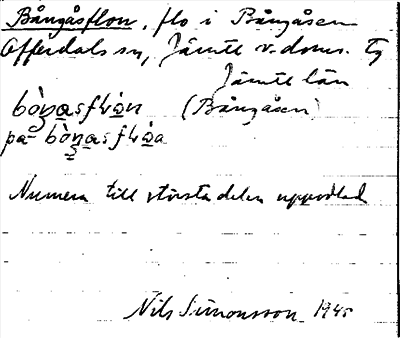 Bångåsflon, flo i Bångåsen
Offerdals sn, Jämtl v. doms. tg
Jämtl län
(Bångåsen)
på
Numera till största delen uppodlad
Nils Simonsson 1945